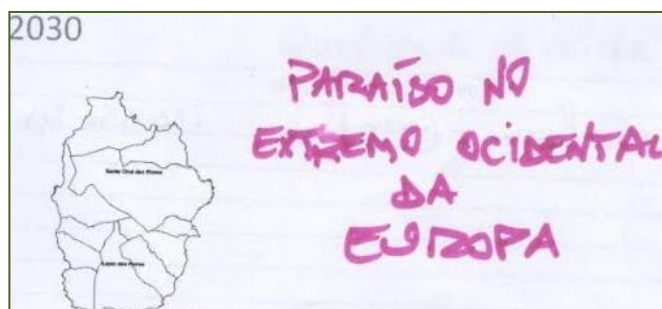 2030
PARAÍSO NO
EXTREMO OCIDENTAL
DA
EUROPA
Santa Cruz das Flores
Lajes das Flores